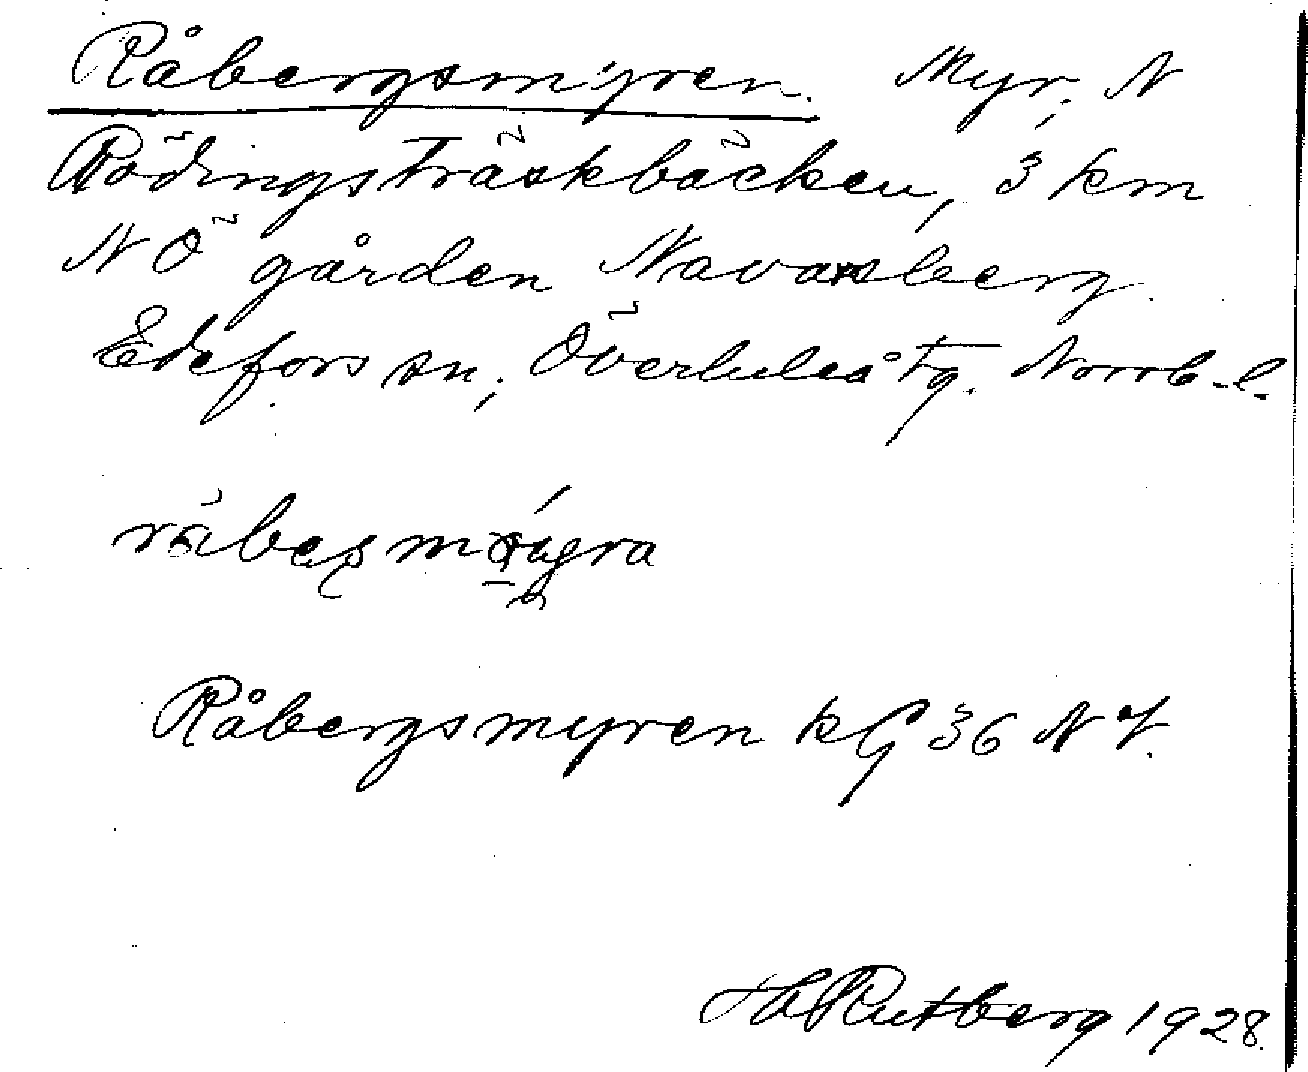 Råbergsmyren. Myr, N
Rödingsträskbäcken, 3 km
NÖ gården Navarsberg.
Edefors sn, Överluleå tg. Norrb. l.
Råbergsmyren kG 36 NV.
H Rutberg 1928.